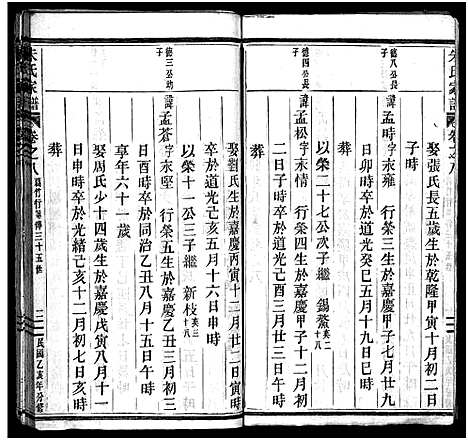 朱氏家譜
卷之八
娶張氏長五歲生於乾隆甲寅十月初二日
子時
德八公長子
諱孟時字永雍 行榮三生於嘉慶甲子七月廿九
日卯時卒於道光癸巳五月十九日巳時
以榮二十七公次子繼 錫鰲 英二十八
德四公長子
諱孟松字永情 行榮四生於嘉慶甲子十二月初
二日子時卒於道光己酉三月廿三日午時
葬
娶劉氏生於嘉慶丙寅十二月廿二日寅時
卒於道光己亥五月十六日申時
以榮十一公三子繼 新枝 英三十八
德三公幼子
諱孟蒼字永堅 行榮五生於嘉慶乙丑三月初三
日酉時卒於同治乙丑八月十五日午時
享年六十一歲
娶周氏少十四歲生於嘉慶戊寅八月十一
日申時卒於光緒己亥十二月初七日亥時
葬
朱氏家譜
卷之八
爲竹行第傳三十五修
民國乙亥年分修